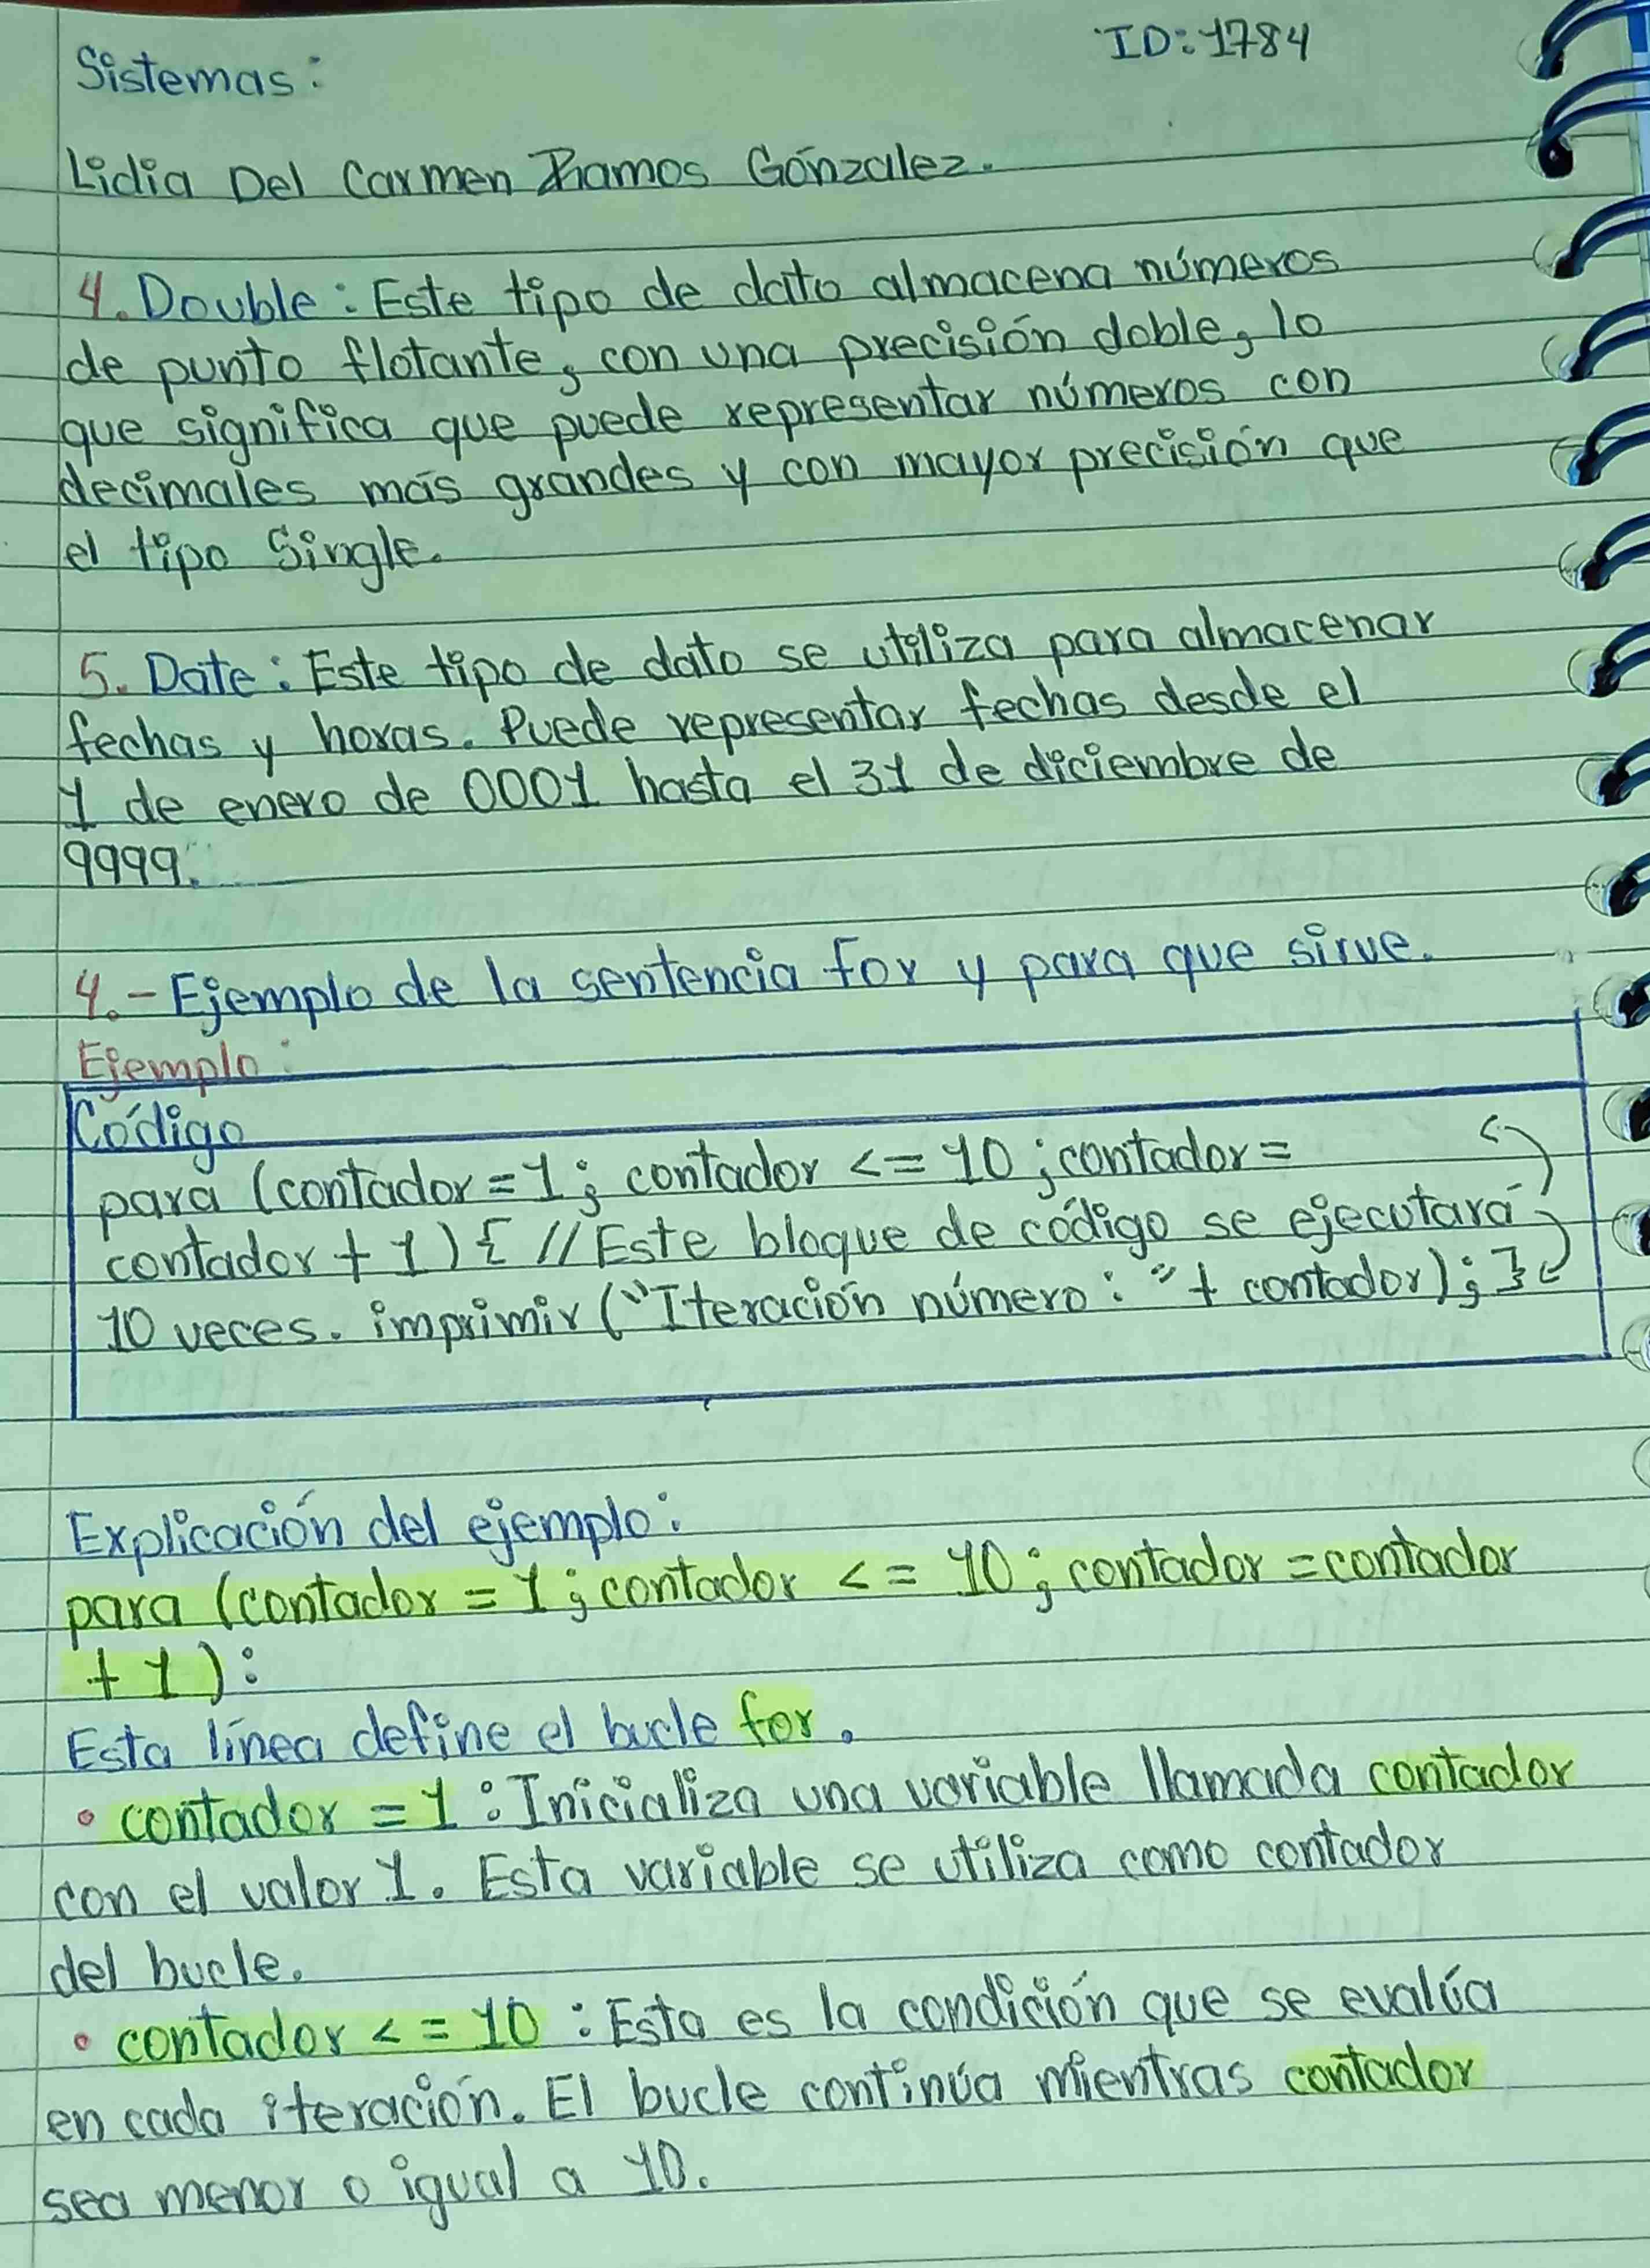 ID:1784
Sistemas:
Lidia Del Carmen Ramos Gónzalez.
4. Double: Este tipo de dato almacena números
de punto flotante, con una precisión doble, lo
que significa que puede representar números con
decimales más grandes y con mayor precisión que
el tipo Single.
5. Date: Este tipo de dato se utiliza para almacenar
fechas y horas. Puede representar fechas desde el
1 de enero de 0001 hasta el 31 de diciembre de
9999.
4.- Ejemplo de la sentencia for y para que sirve.
Ejemplo:
Código
para (contador = 1; contador <= 10; contador =
contador + 1) { // Este bloque de código se ejecutará
10 veces. imprimir ("Iteración número: " + contador); }
Explicación del ejemplo:
para (contador = 1; contador <= 10; contador = contador
+ 1):
Esta línea define el bucle for.
• contador = 1: Inicializa una variable llamada contador
con el valor 1. Esta variable se utiliza como contador
del bucle.
• contador <= 10: Esta es la condición que se evalúa
en cada iteración. El bucle continúa mientras contador
sea menor o igual a 10.